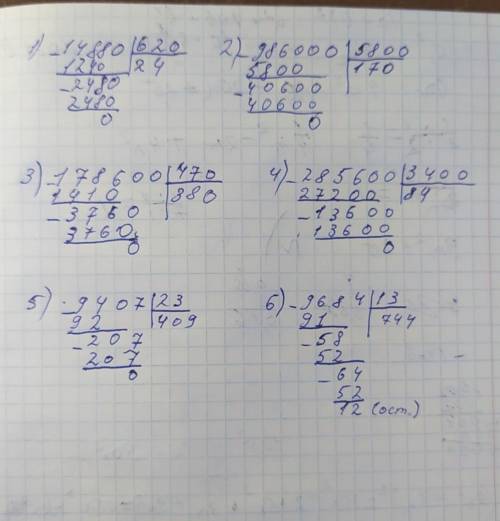 1) -14880 620
1240 24
-2480
2480
0
2) -986000 5800
5800 170
-40600
40600
0
3) -178600 470
1410 380
-3760
3760
0
4) -285600 3400
27200 84
-13600
13600
0
5) -9407 23
92 409
-207
207
0
6) -9684 13
91 744
-58
52
-64
52
12 (ост.)